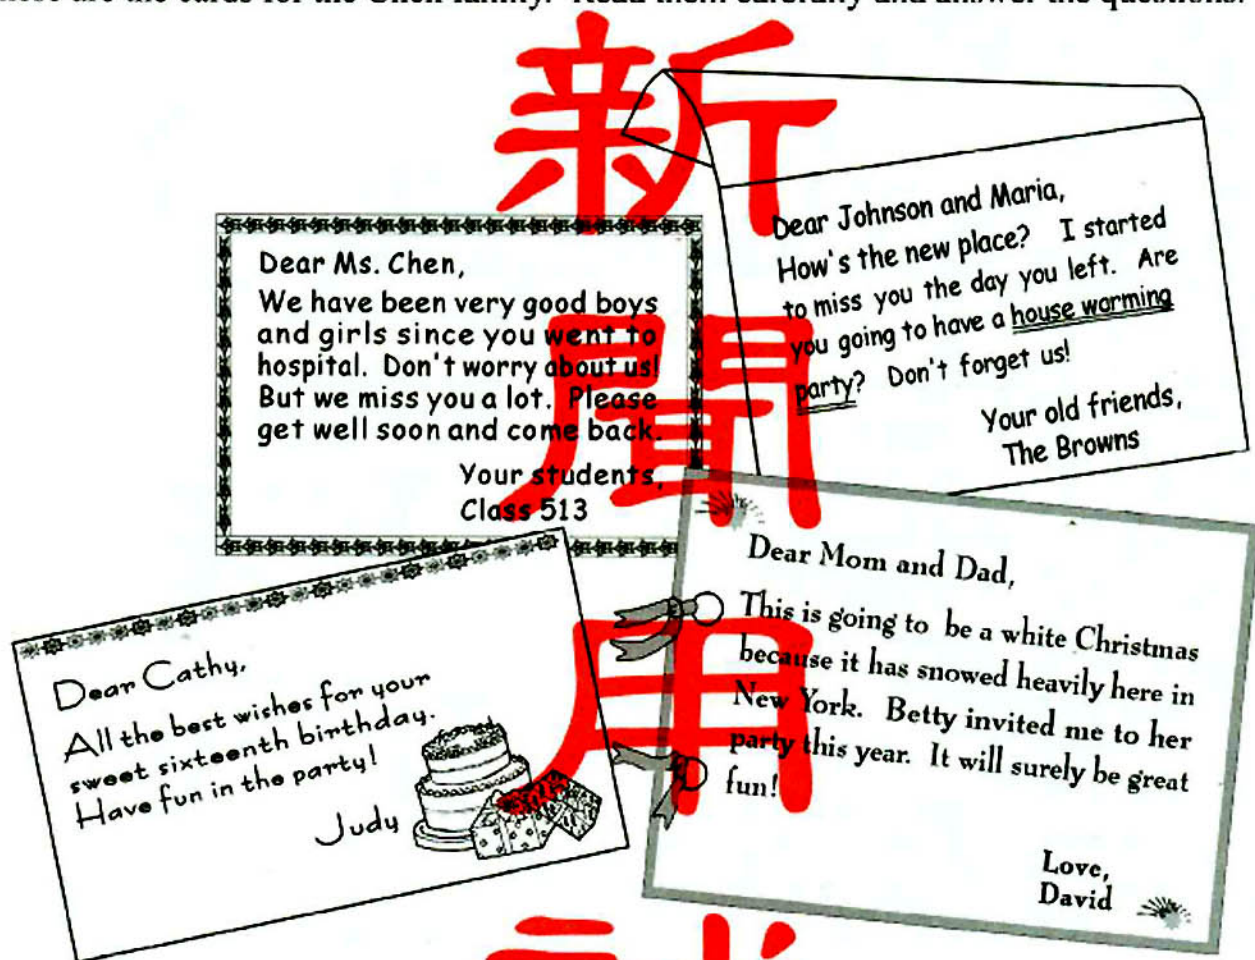 These are the cards for the Chen family. Read them carefully and answer the questions.
新
聞
用
Dear Ms. Chen,
We have been very good boys
and girls since you went to
hospital. Don't worry about us!
But we miss you a lot. Please
get well soon and come back.
Your students,
Class 513
Dear Johnson and Maria,
How's the new place? I started
to miss you the day you left. Are
you going to have a house warming
party? Don't forget us!
Your old friends,
The Browns
Dear Cathy,
All the best wishes for your
sweet sixteenth birthday.
Have fun in the party!
Judy
Dear Mom and Dad,
This is going to be a white Christmas
because it has snowed heavily here in
New York. Betty invited me to her
party this year. It will surely be great
fun!
Love,
David